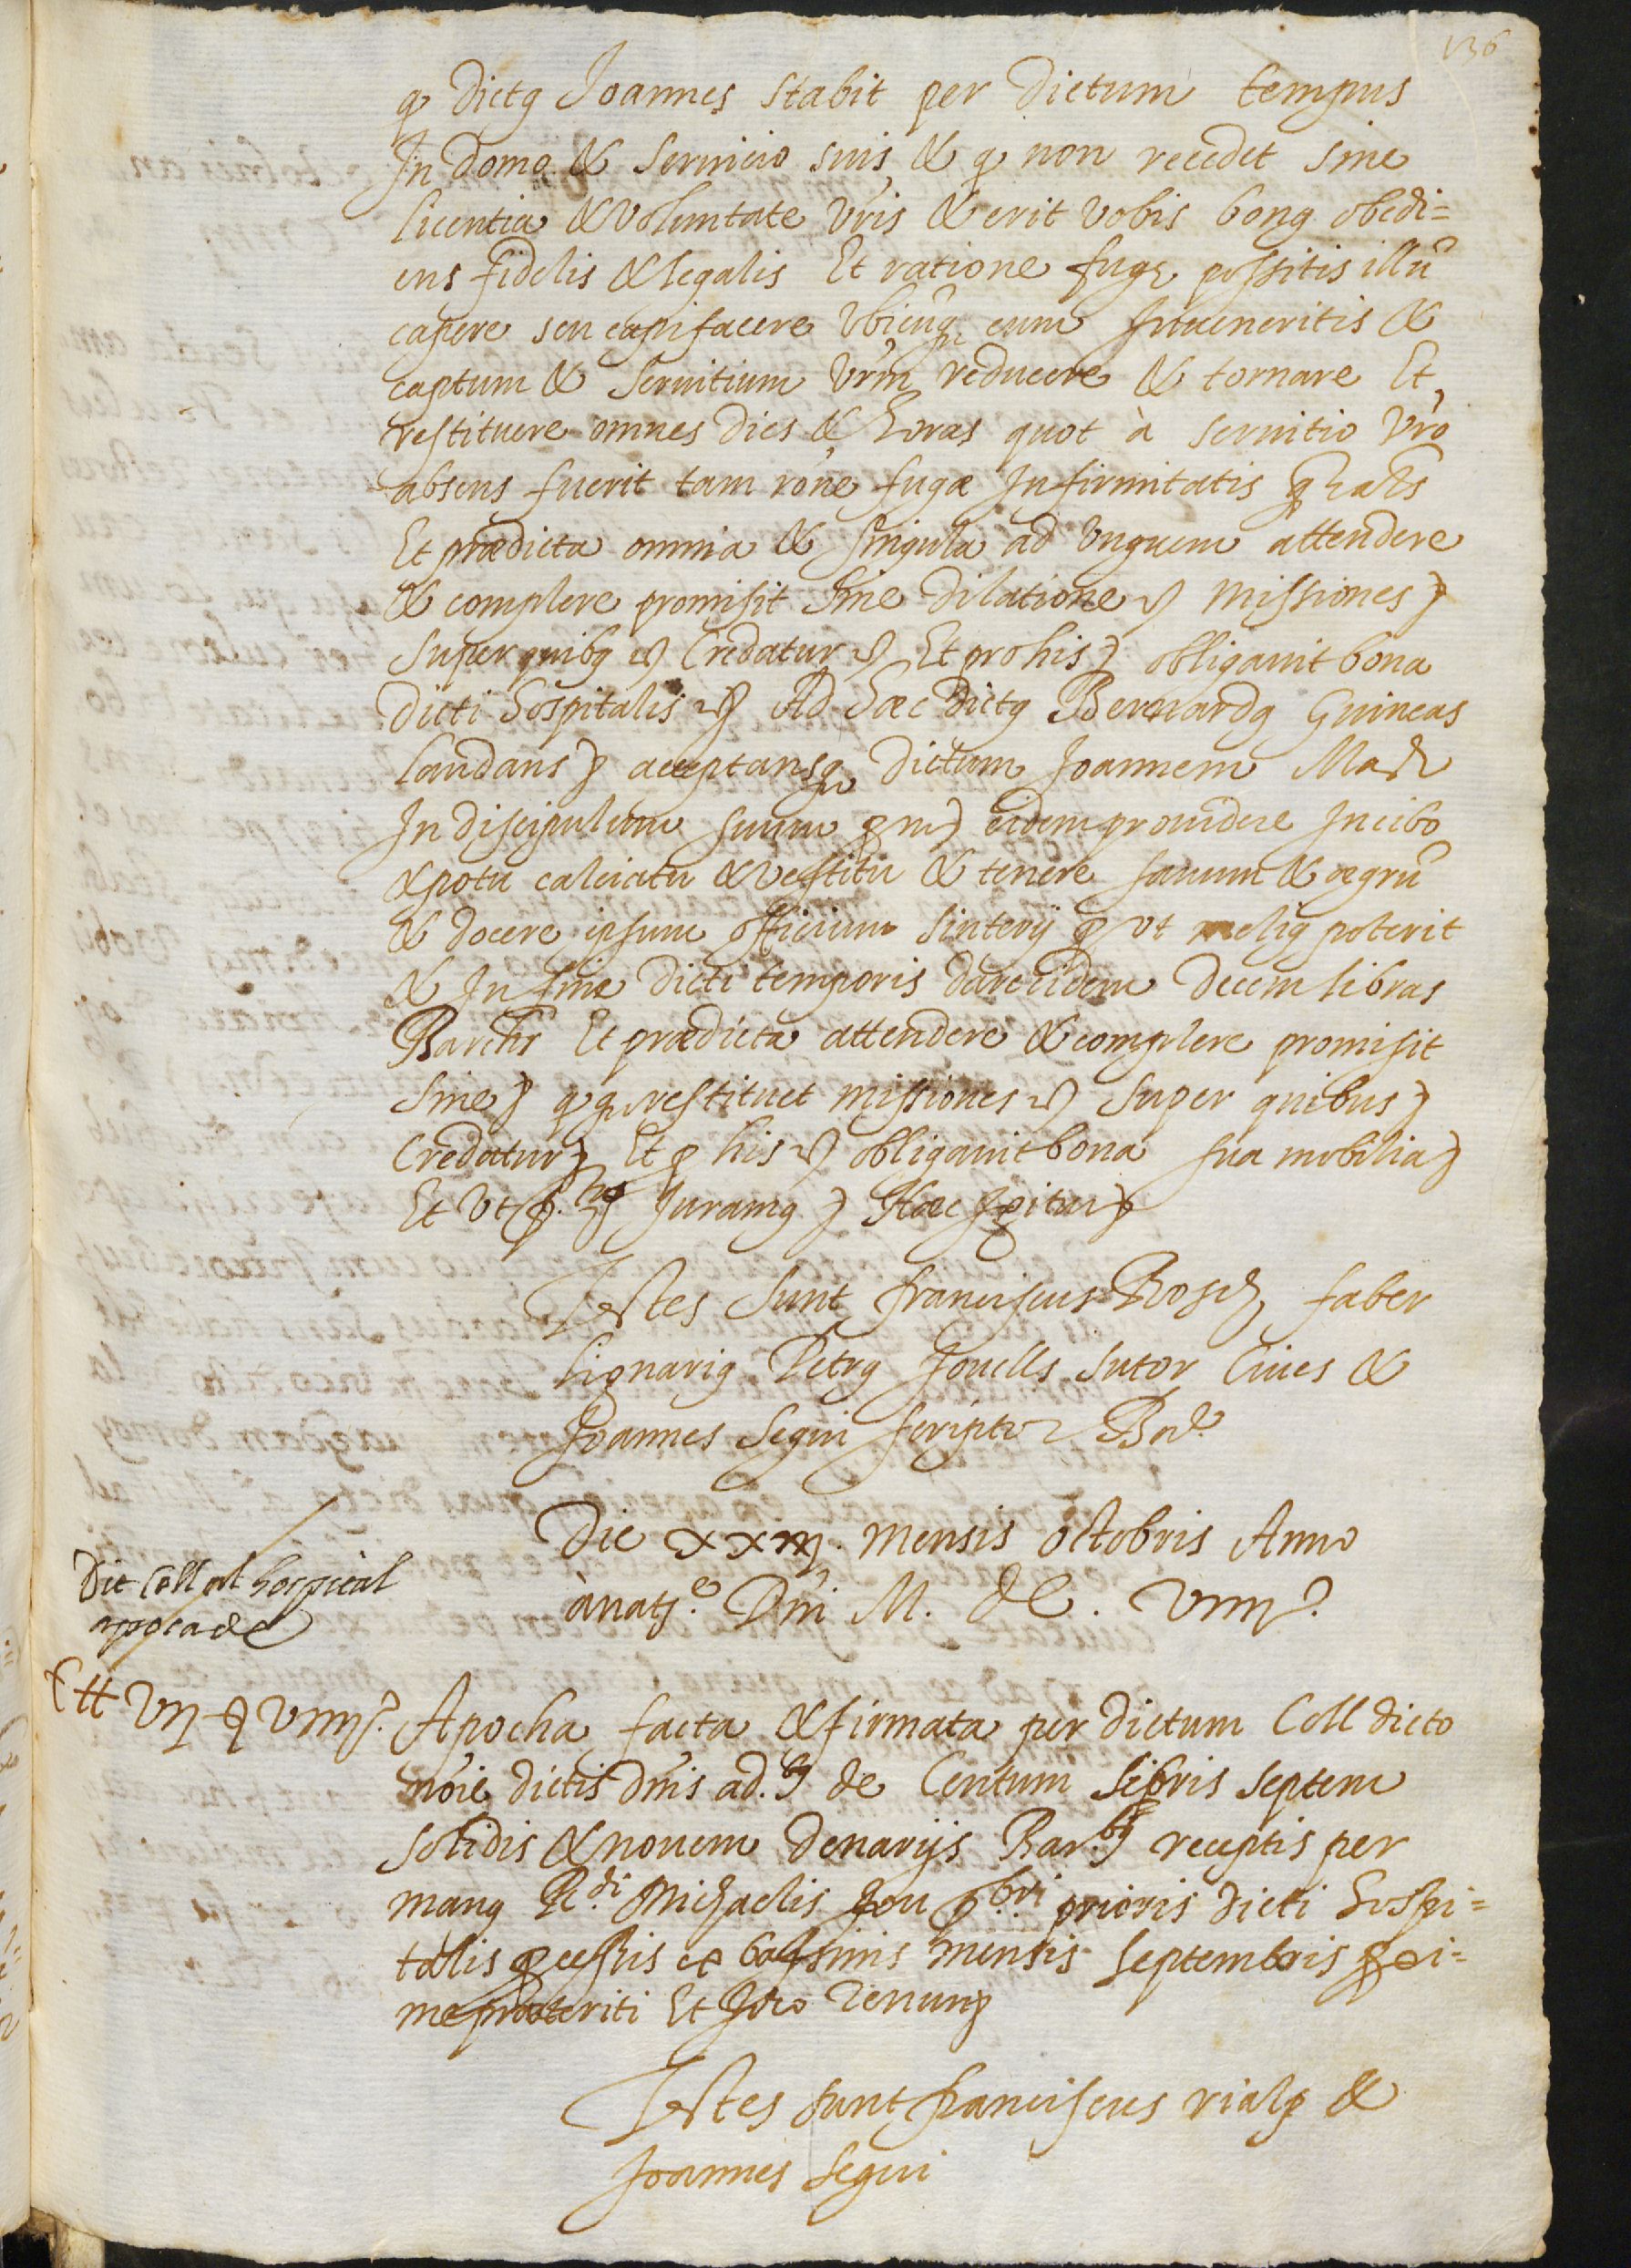 136
q dictq Joannes stabit per dictum tempus
In domo & servicio suis & q non recedet sine
licentia & voluntate vris & erit vobis bonq obedi=
ens fidelis & legalis Et ratione fugę possitis illū
capere seu capi facere Vbicunq eum Inveneritis &
captum & servitium vrm reducere & tornare Et
restituere omnes dies & horas quot à servitio vro
absens fuerit tam rōne fugæ Infirmitatis
Et prædicta omnia & singula ad Vnguem attendere
& complere promisit sine dilatione missiones
Super quibq Credatur Et pro his obligavit bona
dicti hospitalis Ad hæc dictq Bernardq Guineas
laudans acceptansq dictum Joannem
In discipulum suum eidem providere In cibo
& potu calciatu & vestitu & tenere sanum & ægrū
& docere ipsum officium sinterij ut meliq poterit
& In fine dicti temporis dare eidem decem libras
Barchs Et prædicta attendere & complere promisit
Sine restituet missiones Super quibus
Credatur Et p his obligavit bona sua mobilia
Et Vt Juramq Hæc Igitur
Testes sunt franciscus Bosch faber
Lignariq Petrq Jovells sutor Cives &
Joannes Segui scriptor Bne
Die xxiij. mensis octobris Anno
ànate Dñi M. DC. Viiij.
Dit Coll al hospital
appoca de
C tt Vij ß Viiij. Apocha facta & firmata per dictum Coll dicto
nōie dictis dnis ad. de Centum libris septem
solidis & novem denarijs Bar. receptis per
manq Rdi. Michaelis Jou pbri prioris dicti Hospi=
talis mensis septembris proxi=
me præteriti Et Ideo renun
Testes sunt franciscus rialp &
Joannes Segui